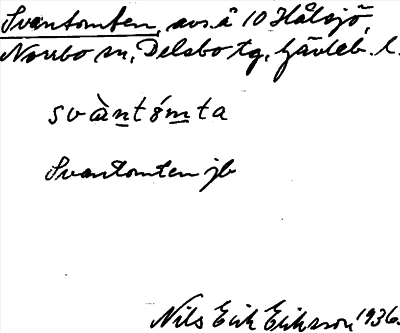 Svantomten, avs. å 10 Hålsjö,
Norrbo sn, Delsbo tg, Gävleb. l.
svàntómta
Svantomten jb
Nils Erik Eriksson 1936.